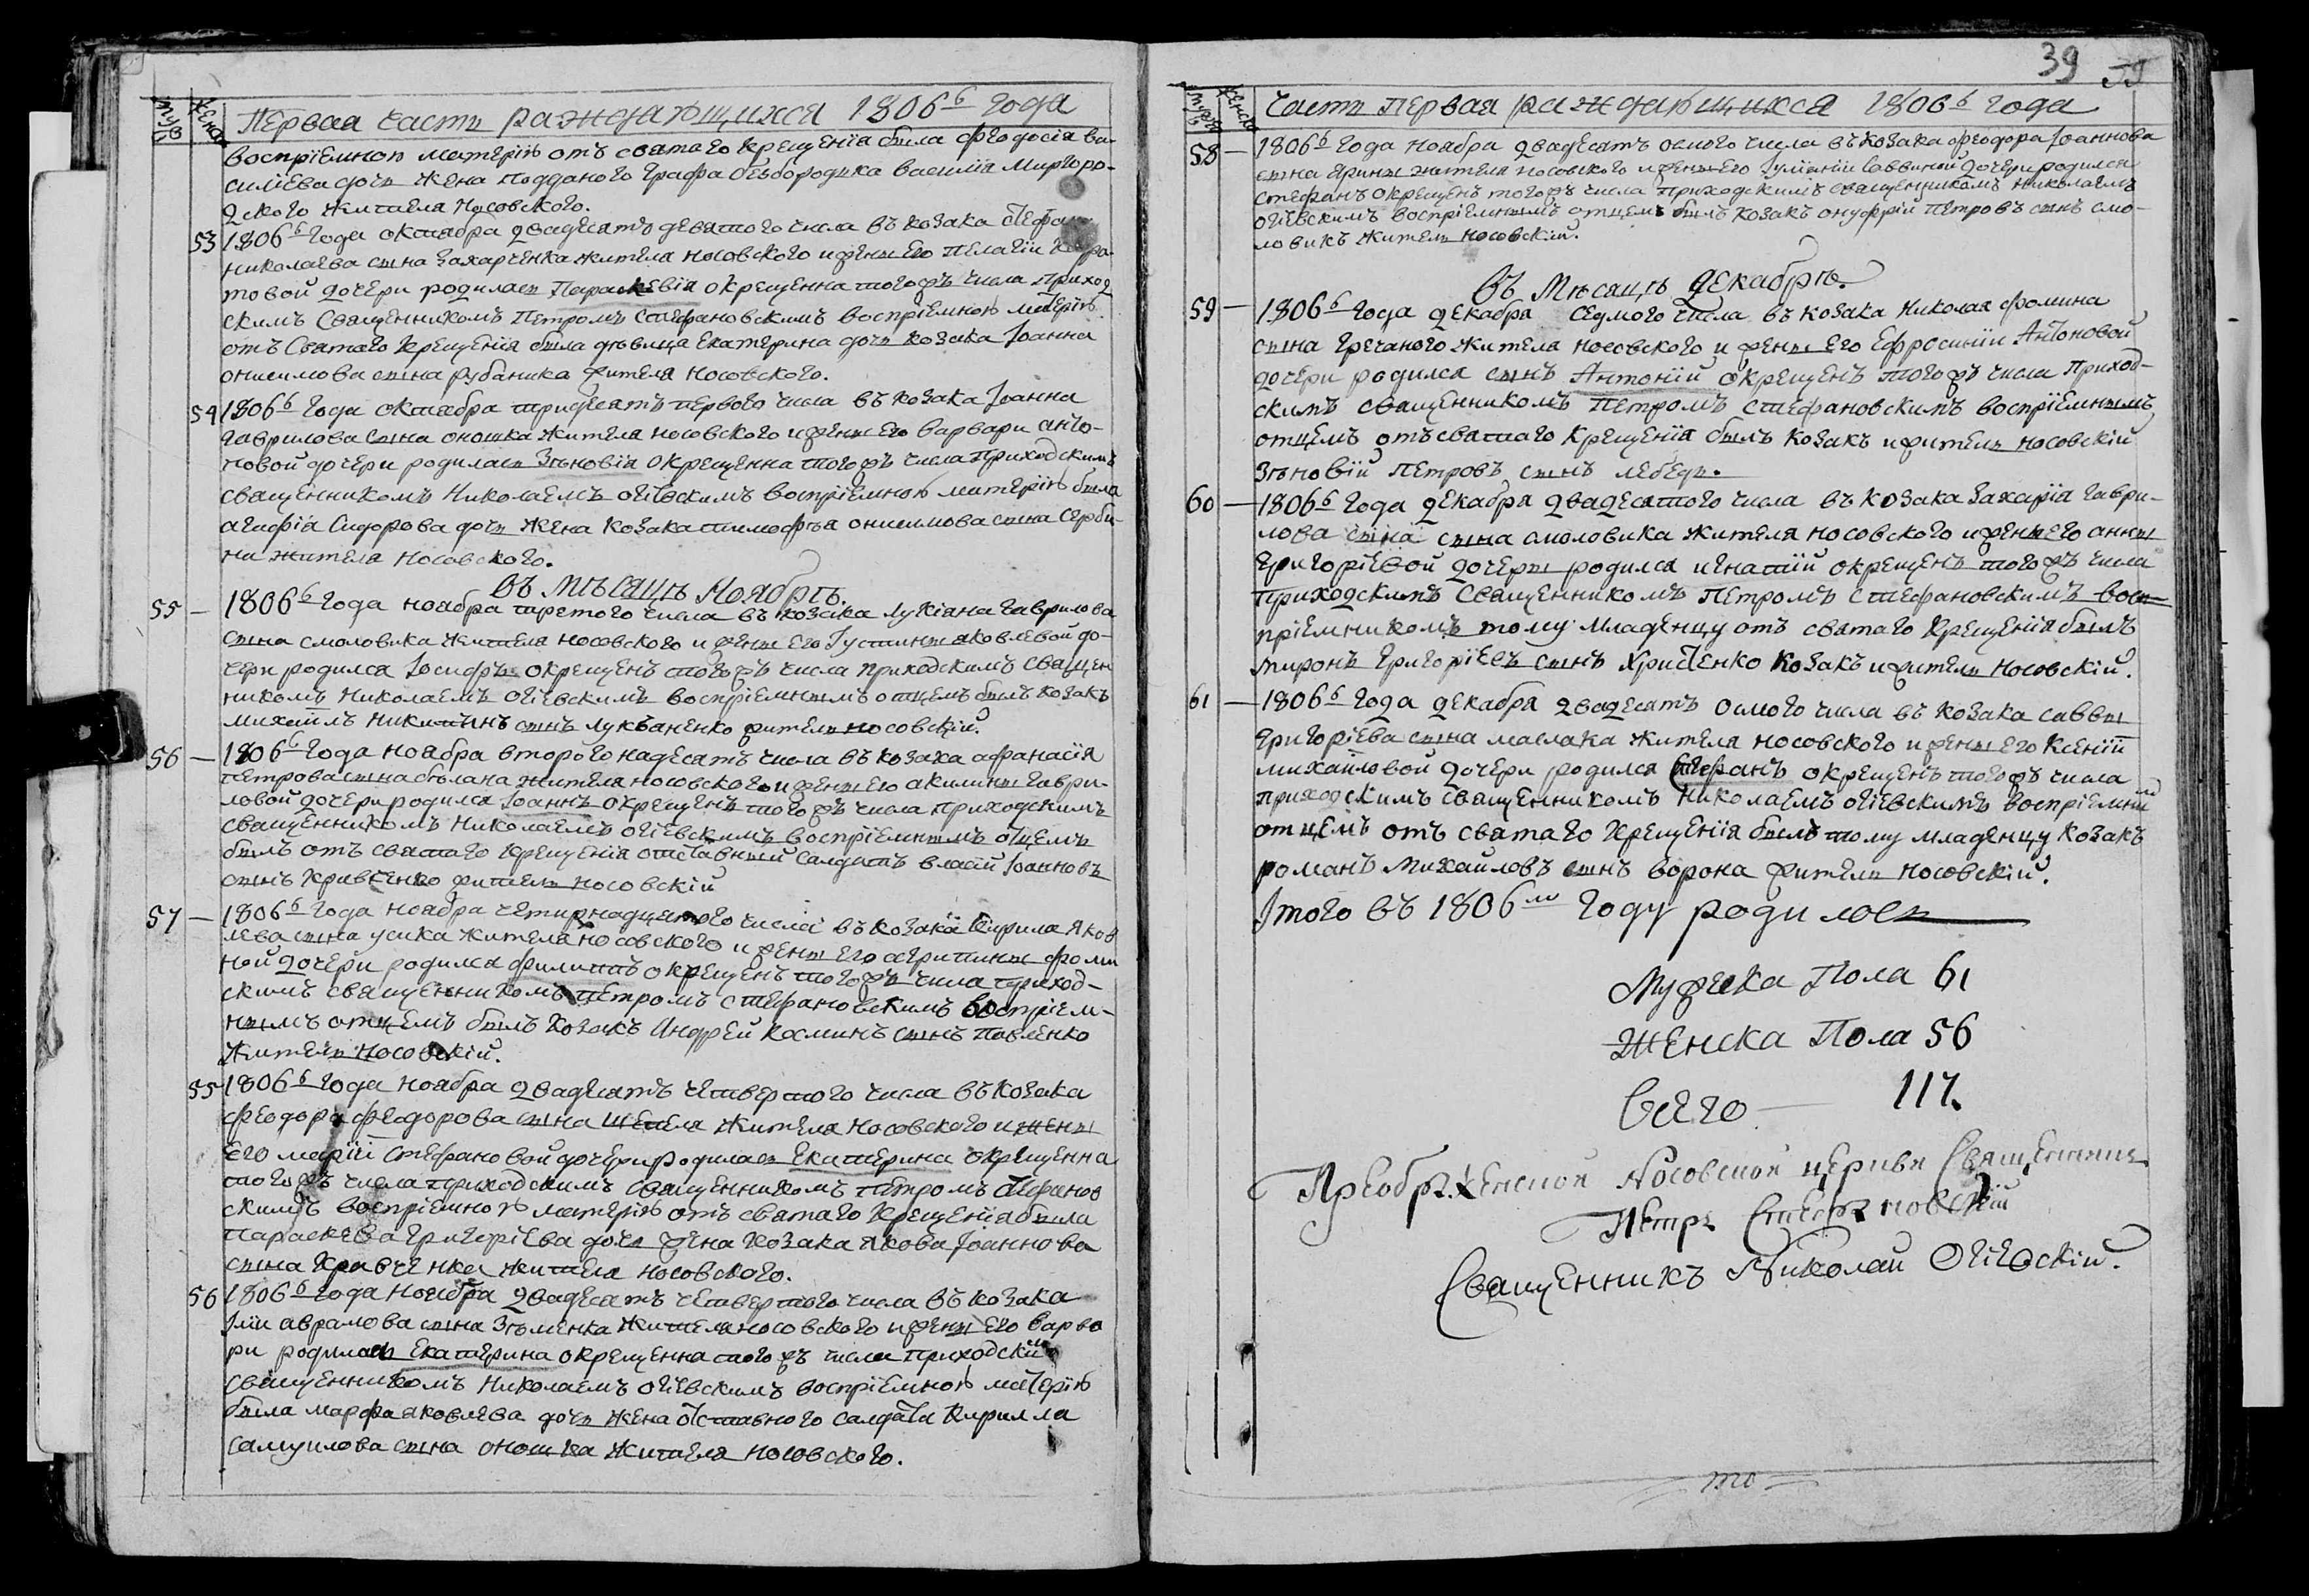 муж женс
Первая часть раждающихся 1806ᵍᵒ года
воспріемною матерію отъ святаго крещенія была Феодосія ва-
силіева дочь жена подданого Графа безбородька василія миргоро-
дского жителя Носовского.
53 1806ᵍᵒ года октября двадесять девятого числа въ козака Стефана
николаева сына захарченка жителя носовского и жены Его пелагіи
товой дочери родилась Параскевія окрещенна того жъ числа приход
скимъ священникомъ Петромъ Стефановскимъ воспріемною матерію
отъ Святаго крещенія была дѣвица Екатерина дочь козака Іоанна
онисимова сына рубаника жителя Носовского.
54 1806ᵍᵒ года октября тридесять первого числа въ козака Іоанна
гаврилова сына оношка жителя носовского и жены Его варвари анто-
новой дочери родилась Зѣновія окрещенна того жъ числа приходскимъ
священникомъ Николаемъ огіевскимъ воспріемною матерію была
агафіа Сидорова дочь жена козака тимофѣя онисимова сына Серби-
ни жителя носовского.
въ Мѣсяцѣ Ноябрѣ.
55 — 1806ᵍᵒ года ноября третого числа въ козака лукіана гаврилова
сына смоловика жителя носовского и жены Его Густины яковлевой до-
чери родился Іосифъ окрещенъ того жъ числа приходскимъ священ
никомъ Николаемъ огіевскимъ воспріемнымъ отцемъ былъ козакъ
михаилъ никитинъ сынъ лукъяненко житель носовскій.
56 — 1806ᵍᵒ года ноября второгонадесять числа въ козака афанасія
петрова сына бѣлана жителя носовского и жены Его акилины гаври-
ловой дочери родился Іоаннъ окрещенъ того жъ числа приходскимъ
священникомъ Николаемъ огіевскимъ воспріемнымъ отцемъ
былъ отъ святаго крещенія отставный салдатъ власій Іоанновъ
сынъ кравченко житель носовскій
57 — 1806ᵍᵒ года ноября четирнадцятого числа въ козака Кирила Яков
лева сына усика жителя носовского и жены Его агрипины фоми
ной дочери родился филиппъ окрещенъ того жъ числа приход-
скимъ священникомъ Петромъ Стефановскимъ воспріем-
нымъ отцемъ былъ козакъ Андрей косминъ сынъ павленко
житель носовскій.
55 1806ᵍᵒ года ноября двадесять четвертого числа въ козака
феодора феодорова сына шепеля жителя носовского и жены
Его маріи Стефановой дочери родилась Екатерина окрещенна
того жъ числа приходскимъ священникомъ петромъ Стефанов
скимъ воспріемною матерію отъ святаго крещенія была
параскева григоріева дочь жена козака якова Іоаннова
сына кравченка жителя носовского.
56 1806ᵍᵒ года ноября двадесять четвертого числа въ козака
Іліи аврамова сына Зѣменка жителя носовского и жены Его варва
ри родилась Екатерина окрещенна того жъ числа приходскимъ
священникомъ Николаемъ огіевскимъ воспріемною матерію
была марфа яковлева дочь жена отставного салдата Кирилла
самуилова сына оношка жителя носовского.
39 39
мужска женска
Часть первая раждающихся 1806ᵍᵒ года
58 — 1806ᵍᵒ года ноября двадесять осмого числа въ козака феодора Іоаннова
сына ярины жителя носовского и жены Его Іуліаніи Саввиной дочери родился
стефанъ окрещенъ того жъ числа приходскимъ священникомъ николаемъ
огіевскимъ воспріемнымъ отцемъ былъ козакъ онуфрій петровъ сынъ смо-
ловикъ житель носовскій.
въ Мѣсяцѣ Декабрѣ.
59 — 1806ᵍᵒ года декабря седмого числа въ козака николая фомина
сына гречаного жителя носовского и жены Его Ефросиніи Антоновой
дочери родился сынъ Антоній окрещенъ того жъ числа приход-
скимъ священникомъ Петромъ Стефановскимъ воспріемнымъ
отцемъ отъ святаго крещенія былъ козакъ и житель носовскій
Зѣновій петровъ сынъ лебедь.
60 — 1806ᵍᵒ года декабря двадесятого числа въ козака захарія гаври-
лова сына сына смоловика жителя носовского и жены Его анны
григоріевой дочеры родился игнатій окрещенъ того жъ числа
приходскимъ священникомъ Петромъ Стефановскимъ восп-
пріемникомъ тому младенцу отъ святаго крещенія былъ
миронъ григоріевъ сынъ христенко козакъ и житель носовскій.
61 — 1806ᵍᵒ года декабря двадесять осмого числа въ козака саввы
григоріева сына маслака жителя носовского и жены Его ксеніи
михайловой дочери родился Стефанъ окрещенъ того жъ числа
приходскимъ священникомъ николаемъ огіевскимъ воспріемнымъ
отцемъ отъ святаго крещенія былъ тому младенцу козакъ
романъ михайловъ сынъ ворона житель носовскій.
Ітого въ 1806ᵐ году родилось
Мужеска Пола 61
Женска Пола 56
Всего — 117.
Преображенской Носовской церкви Священникъ
Петръ Стефановскій
Священникъ Николай Огіевскій.
то